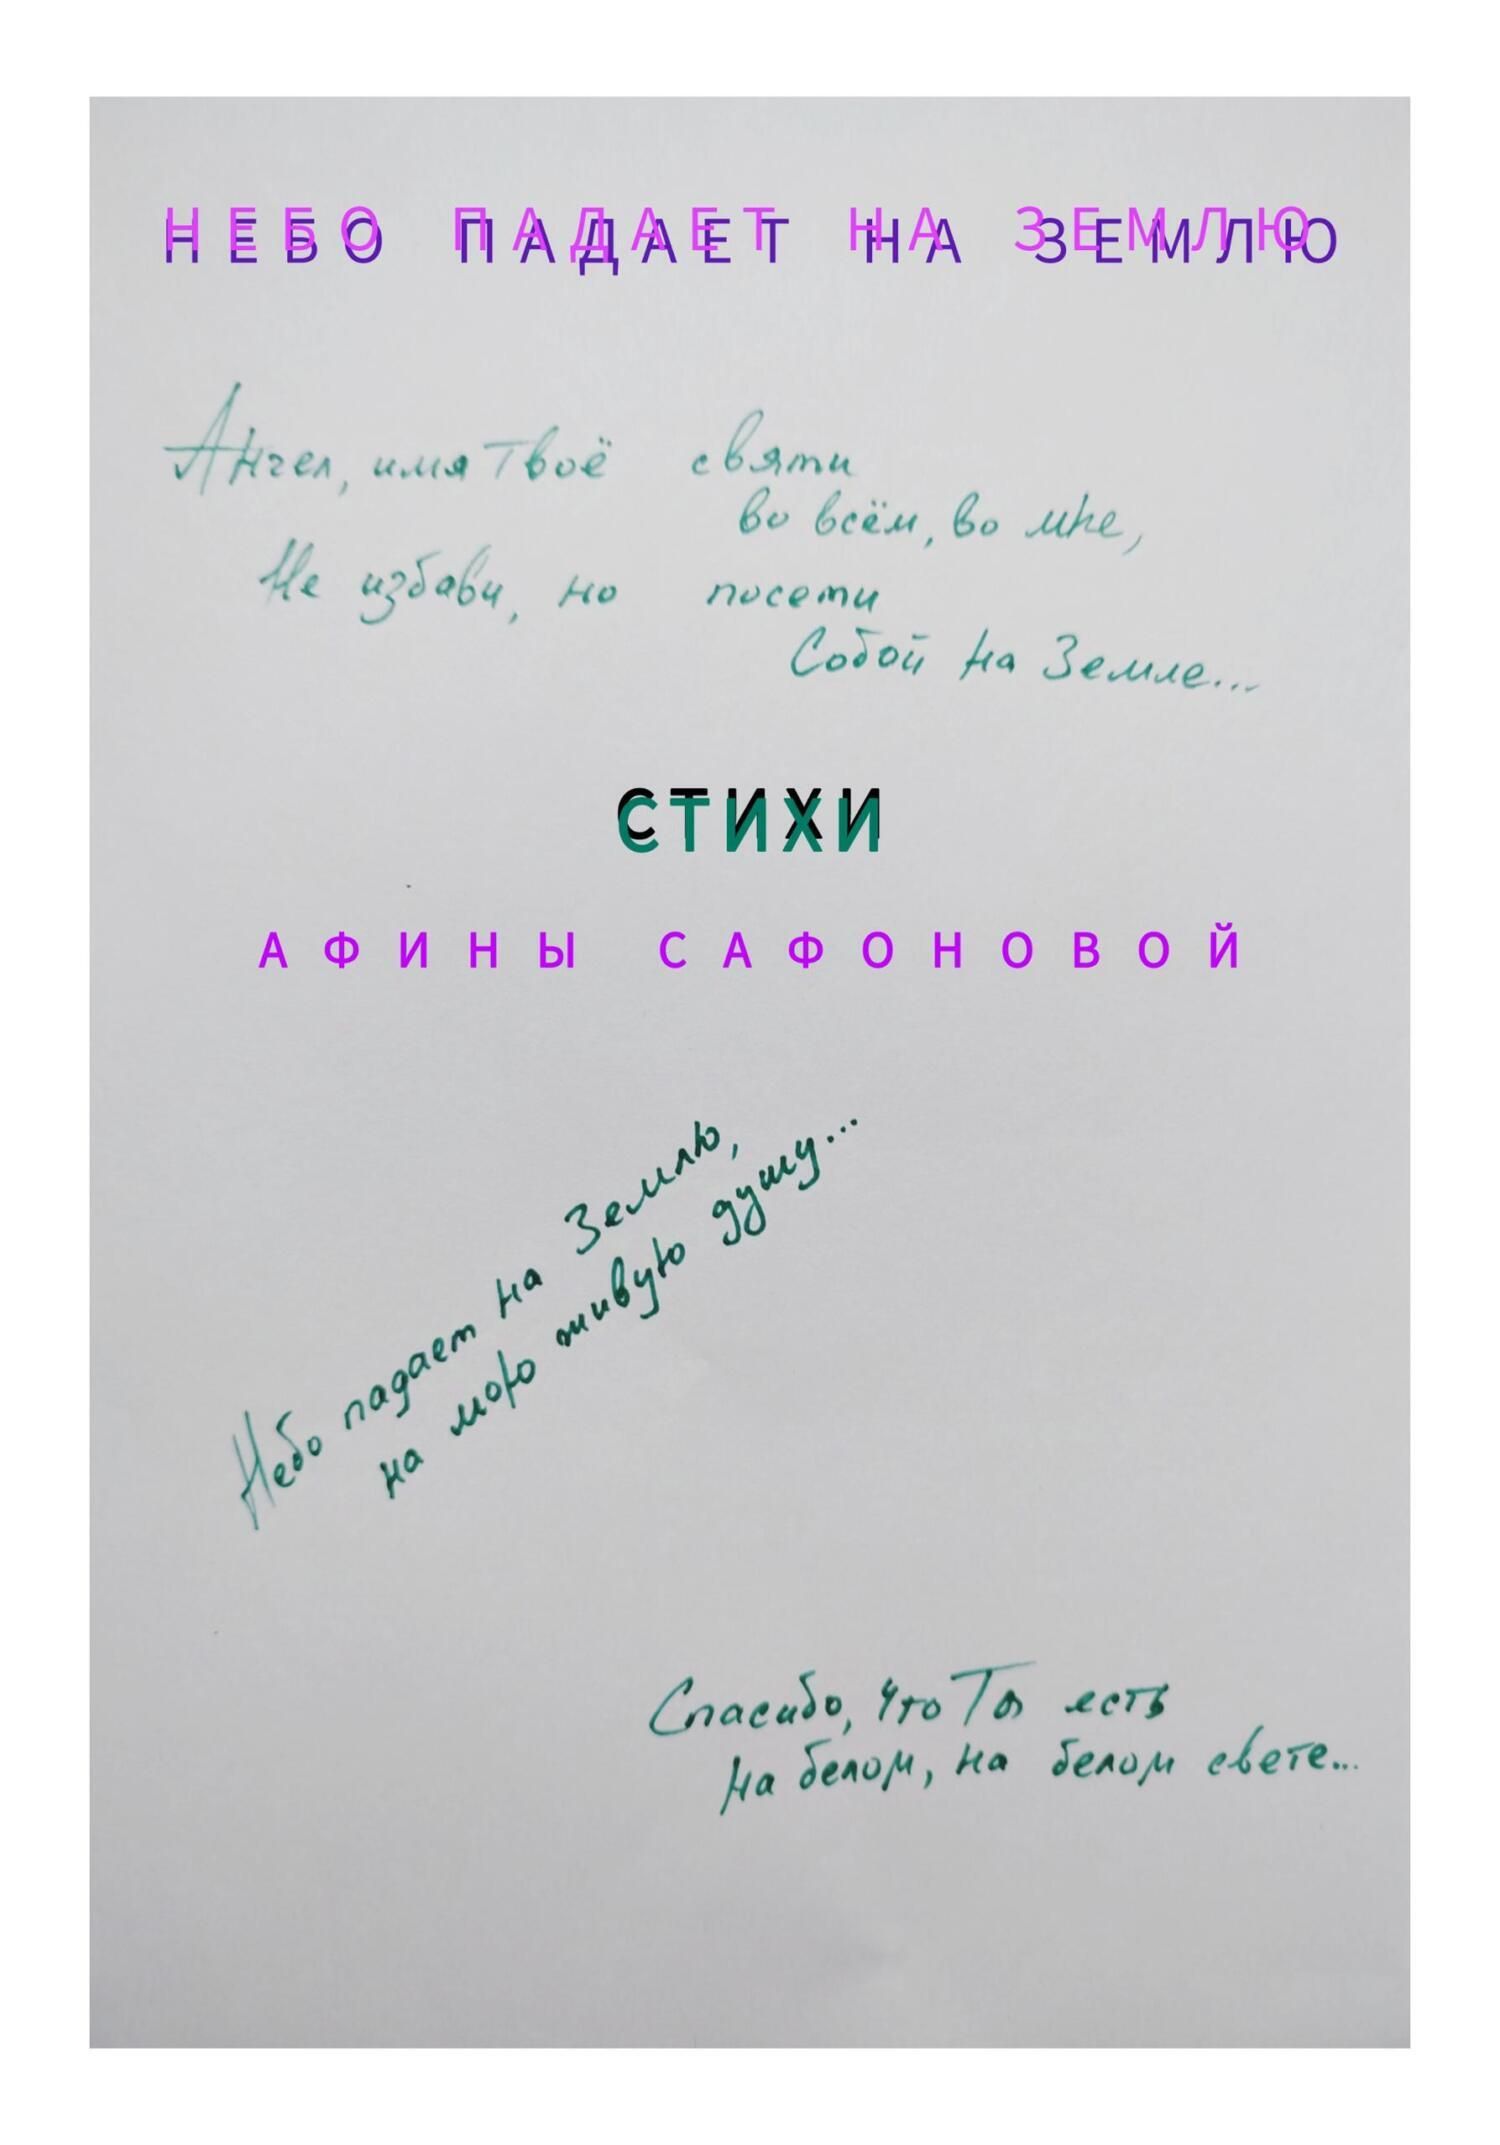 НЕБО ПАДАЕТ НА ЗЕМЛЮ
Ангел, имя Твоё святи
во всём, во мне,
Не избави, но посети
Собой на Земле...
СТИХИ
АФИНЫ САФОНОВОЙ
Небо падает на Землю,
на мою живую душу...
Спасибо, что Ты есть
на белом, на белом свете...